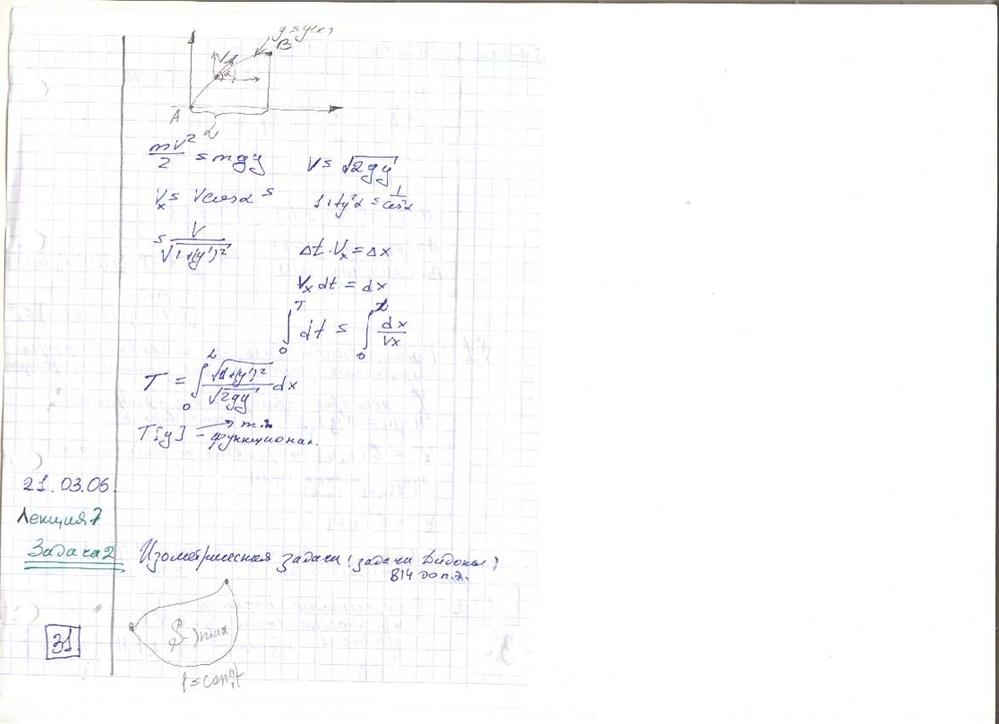 y = y(x)
B
V
α
A
L
mv²/2 = mgy   V = √2gy
Vx = V cosα =   1 + tg²α = 1/cos²α
= V/√1+(y')²   Δt · Vx = Δx
Vx dt = dx
∫₀ᵀ dt = ∫₀ᴸ dx/Vx
T = ∫₀ᴸ √1+(y')²/√2gy dx
T[y] → min
– функционал.
21.03.06.
Лекция 7
Задача 2   Изометрическая задача (задача Дидоны)
814 до н.э.
S max
31
l = const